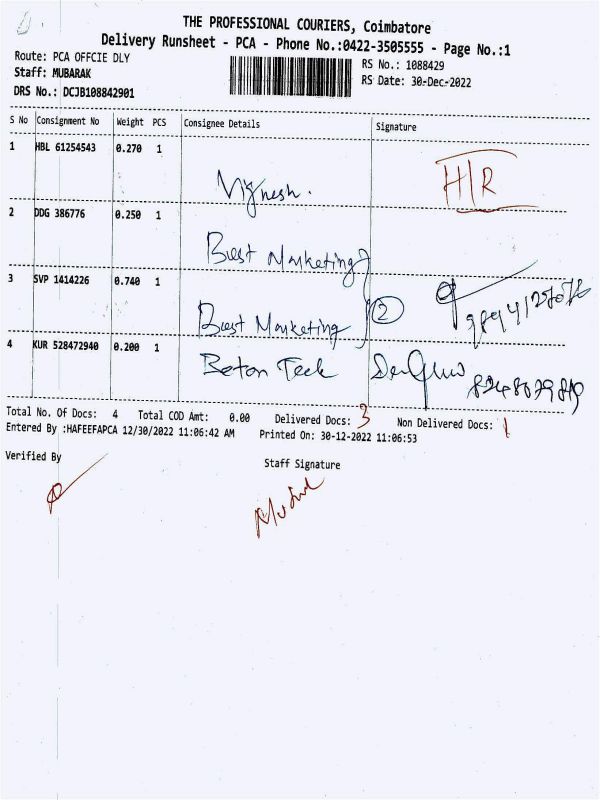 THE PROFESSIONAL COURIERS, Coimbatore
Delivery Runsheet - PCA - Phone No.:0422-3505555 - Page No.:1
Route: PCA OFFCIE DLY
RS No.: 1088429
Staff: MUBARAK
RS Date: 30-Dec-2022
DRS No.: DCJB108842901
S No Consignment No Weight PCS Consignee Details Signature
1 HBL 61254543 0.270 1
Vignesh. H/R
2 DDG 386776 0.250 1
Best Marketing
3 SVP 1414226 0.740 1
Best Marketing 2
4 KUR 528472940 0.200 1
Beton Tech
Total No. Of Docs: 4 Total COD Amt: 0.00 Delivered Docs: 3 Non Delivered Docs: 1
Entered By :HAFEEFAPCA 12/30/2022 11:06:42 AM Printed On: 30-12-2022 11:06:53
Verified By
Staff Signature